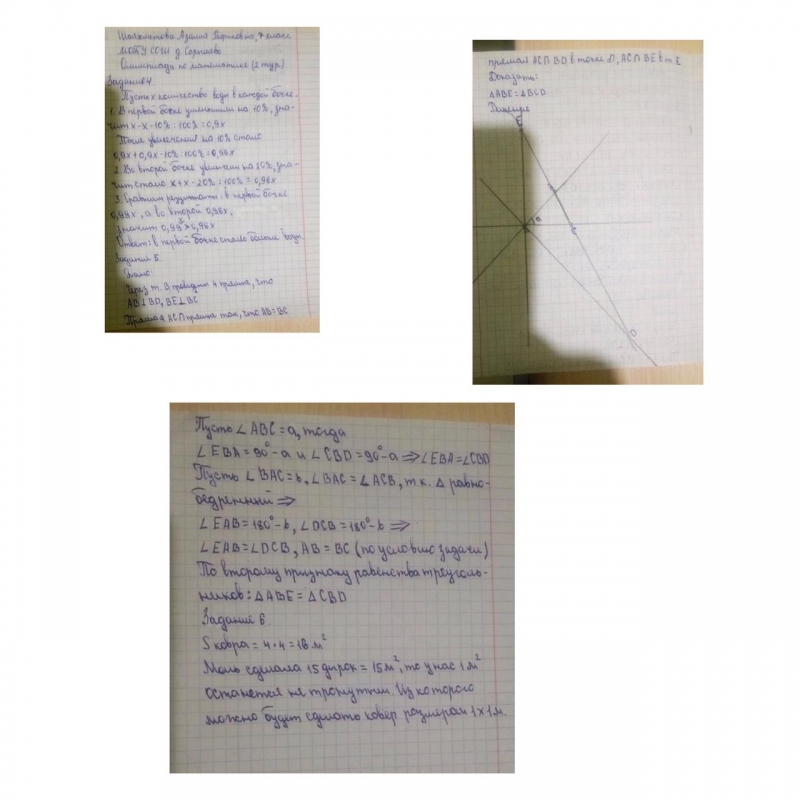 Шаяхметова Азалия, 7 класс
МОТУ СОШ д.
Олимпиада по математике (2 тур)
Задание 4
Пусть x количество воды в каждой бочке.
1. В первой бочке уменьшили на 10%, зна-
чит x-x·10%:100%=0,9x
После увеличения на 10% стало
0,9x+0,9x·10%:100%=0,99x
2. Во второй бочке увеличили на 20%, зна-
чит стало x+x·20%:100%=0,96x
3. Сравним результаты: в первой бочке
0,99x, а во второй 0,96x,
значит 0,99x>0,96x
Ответ: в первой бочке стало больше воды.
Задание 5.
Дано:
Через т. B проводит 4 прямые, что
AB⊥BD, BE⊥BC
Прямая AC∩прямые так, что AB=BC
прямая AC∩BD в точке D, AC∩BE в т. E
Доказать:
△ABE=△BCD
Решение
E
a
C
D
Пусть ∠ABC=a, тогда
∠EBA=90°-a и ∠CBD=90°-a⇒∠EBA=∠CBD
Пусть ∠BAC=b, ∠BAC=∠ACB, т.к. △ равно-
бедренный⇒
∠EAB=180°-b, ∠DCB=180°-b⇒
∠EAB=∠DCB, AB=BC (по условию задачи)
По второму признаку равенства треуголь-
ников: △ABE=△CBD
Задание 6.
S ковра=4·4=16 м²
Моль сделала 15 дырок=15 м², то у нас 1 м²
останется не тронутым. Из которого
можно будет сделать ковёр размером 1×1 м.